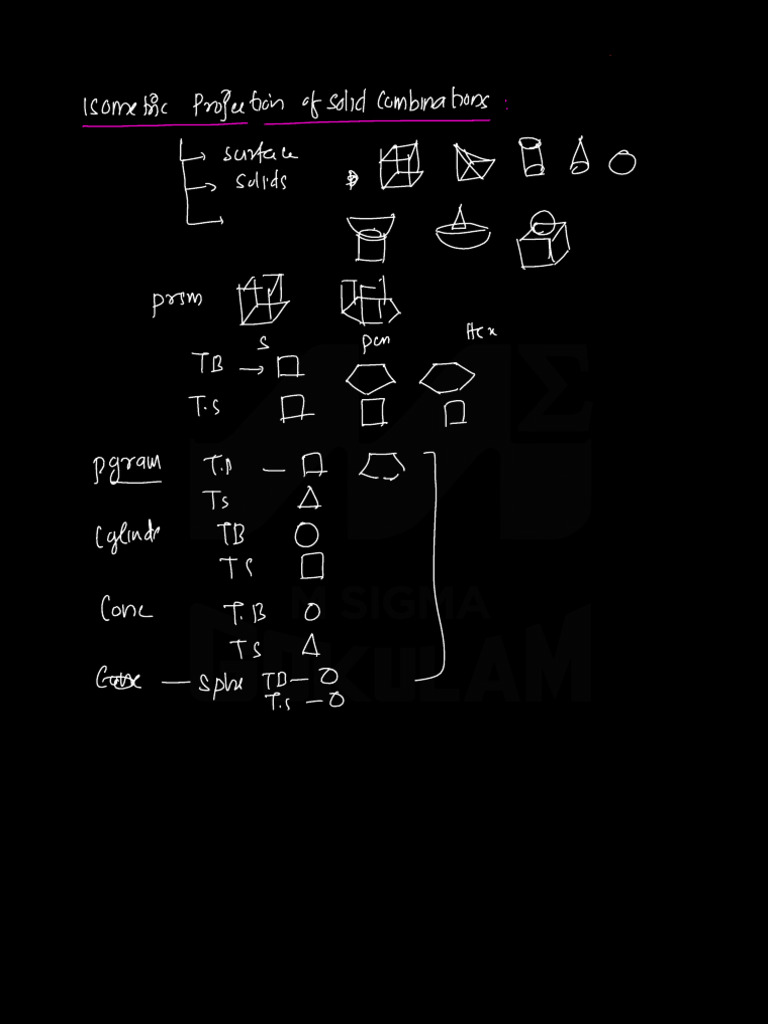 Isometric Projection of Solid Combinations :
surface
solids
prism
S pen Hex
TB
T.S
pgram T.B
TS
Cylindr TB
TS
Cone T.B
TS
Sphe TB - O
T.S - O
M SIGMA
GOKULAM